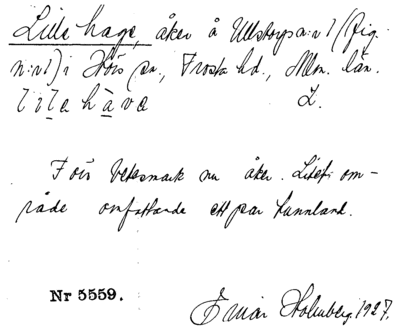 Lille hage, åker å Ullstorp n:r 1 (fig.
n:r 1) i Hörs sn, Frosta hd., Mlm. län.
lila hava L.
Förr betesmark nu åker. Litet om-
råde omfattande ett par tunnland.
Nr 5559.
Ewin Holmberg. 1927.